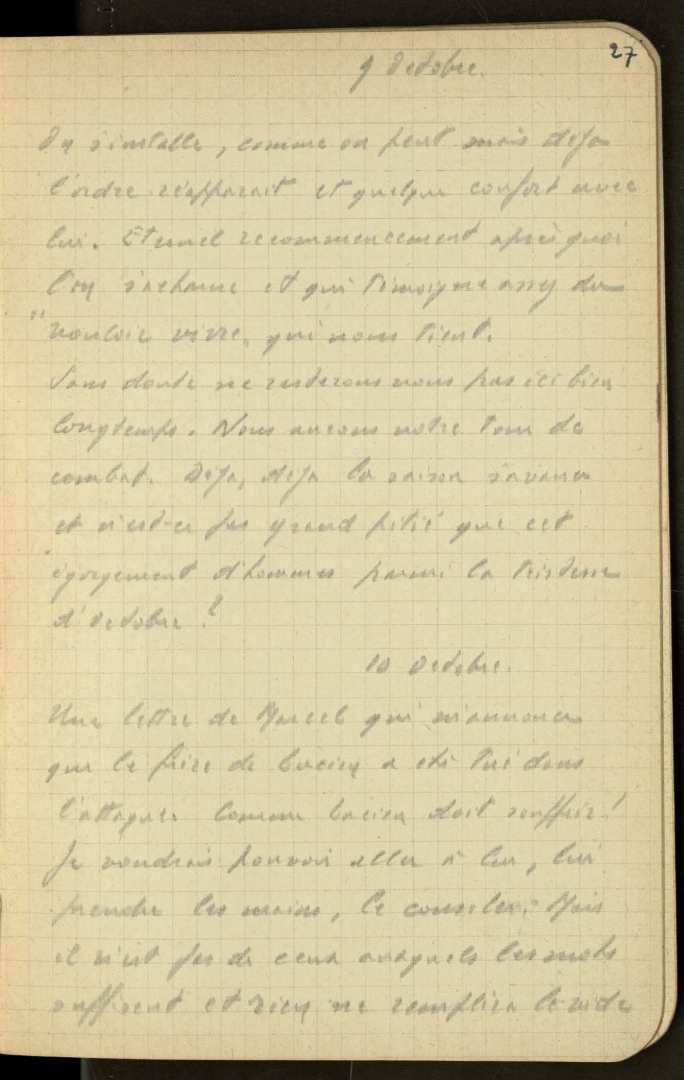 27
9 Octobre.
On s'installe, comme on peut mais déjà
l'ordre réapparait et quelque confort avec
lui. Eternel recommencement après quoi
l'on s'acharne et qui témoigne assez du
"vouloir vivre" qui nous tient.
Sans doute ne resterons nous pas ici bien
longtemps. Nous aurons notre tour de
combat. Déjà, déjà la saison s'avance
et n'est-ce pas grand pitié que cet
égorgement d'hommes parmi la tristesse
d'Octobre ?
10 Octobre.
Une lettre de Marcel qui m'annonce
que le frère de Lucien a été tué dans
l'attaque. Comme Lucien doit souffrir !
Je voudrais pouvoir aller à lui, lui
prendre les mains, le consoler. Mais
il n'est pas de ceux auxquels les mots
suffisent et rien ne remplira le vide